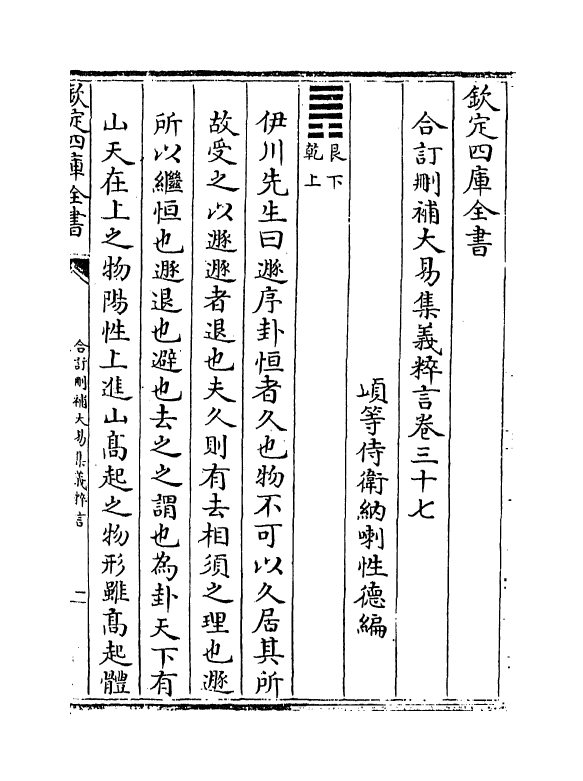 欽定四庫全書
合訂刪補大易集義粹言卷三十七
頭等侍衛納喇性德編
艮下
乾上
伊川先生曰遯序卦恒者久也物不可以久居其所
故受之以遯遯者退也夫久則有去相須之理也遯
所以繼恒也遯退也避也去之之謂也為卦天下有
山天在上之物陽性上進山高起之物形雖高起體
欽定四庫全書
合訂刪補大易集義粹言